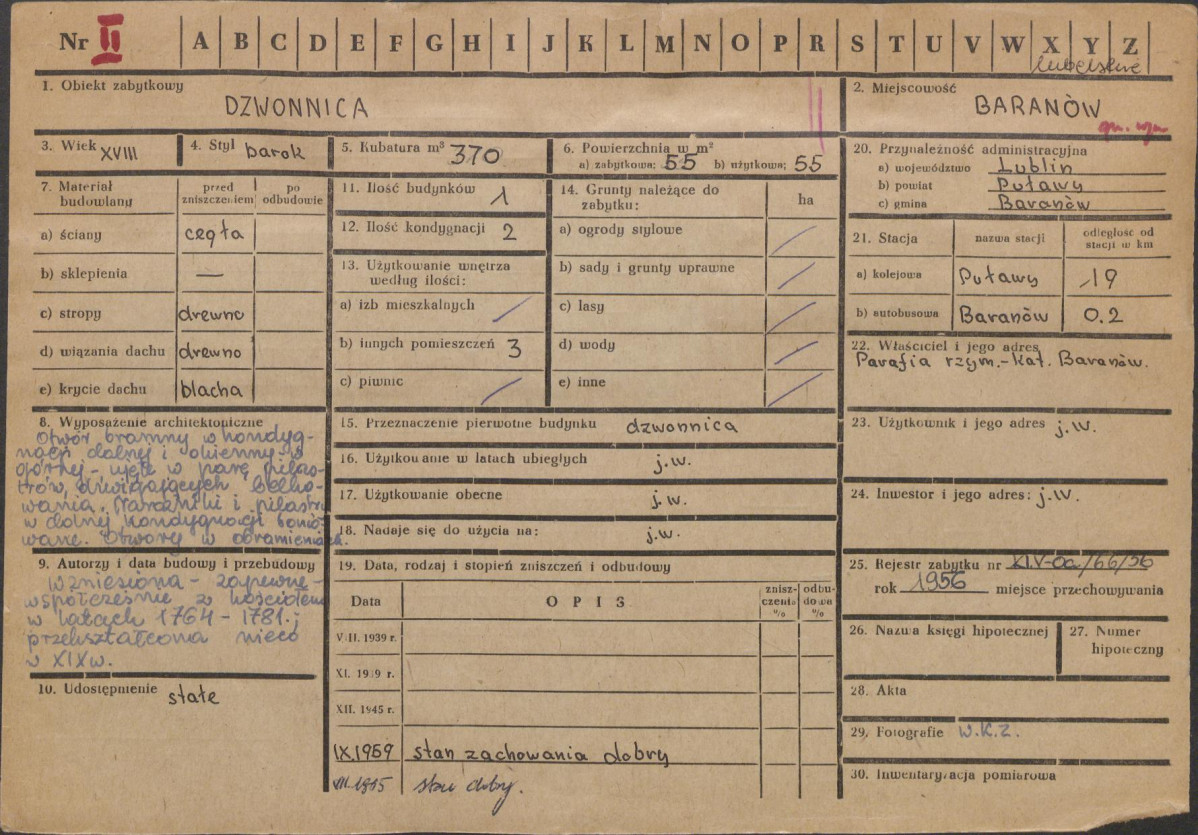 Nr II A B C D E F G H I J K L M N O P R S T U V W X Y Z
lubelskie
1. Obiekt zabytkowy
DZWONNICA
2. Miejscowość
BARANÓW
3. Wiek XVIII
4. Styl barok
5. Kubatura m³ 370
6. Powierzchnia w m²
a) zabytkowa: 55 b) użytkowa: 55
7. Materiał budowlany
przed zniszczeniem
po odbudowie
a) ściany cegła
b) sklepienia —
c) stropy drewno
d) wiązania dachu drewno
e) krycie dachu blacha
8. Wyposażenie architektoniczne
Otwór bramny w kondyg-
nacji dolnej i okienny w
górnej - ujęte w parę pilas-
trów, dźwigających belko-
wania. Narożniki i pilastry
w dolnej kondygnacji bonio-
wane. Otwory w obramieniach.
9. Autorzy i data budowy i przebudowy
wzniesiona - zapewne -
współcześnie z kościołem
w latach 1764 - 1781.;
przekształcona nieco
w XIX w.
10. Udostępnienie stałe
11. Ilość budynków 1
12. Ilość kondygnacji 2
13. Użytkowanie wnętrza
według ilości:
a) izb mieszkalnych
b) innych pomieszczeń 3
c) piwnic
14. Grunty należące do
zabytku:
ha
a) ogrody stylowe
b) sady i grunty uprawne
c) lasy
d) wody
e) inne
15. Przeznaczenie pierwotne budynku dzwonnica
16. Użytkowanie w latach ubiegłych j.w.
17. Użytkowanie obecne j.w.
18. Nadaje się do użycia na: j.w.
19. Data, rodzaj i stopień zniszczeń i odbudowy
Data
OPIS
znisz-
czenia
%
odbu-
dowa
%
VIII. 1939 r.
XI. 1939 r.
XII. 1945 r.
IX.1959 stan zachowania dobry
stan dobry.
20. Przynależność administracyjna
a) województwo Lublin
b) powiat Puławy
c) gmina Baranów
21. Stacja
nazwa stacji
odległość od
stacji w km
a) kolejowa Puławy 19
b) autobusowa Baranów 0.2
22. Właściciel i jego adres
Parafia rzym.-kat. Baranów.
23. Użytkownik i jego adres j.w.
24. Inwestor i jego adres: j.w.
25. Rejestr zabytku nr XLV-0a/66/56
rok 1956 miejsce przechowywania
26. Nazwa księgi hipotecznej
27. Numer
hipoteczny
28. Akta
29. Fotografie W.K.Z.
30. Inwentaryzacja pomiarowa